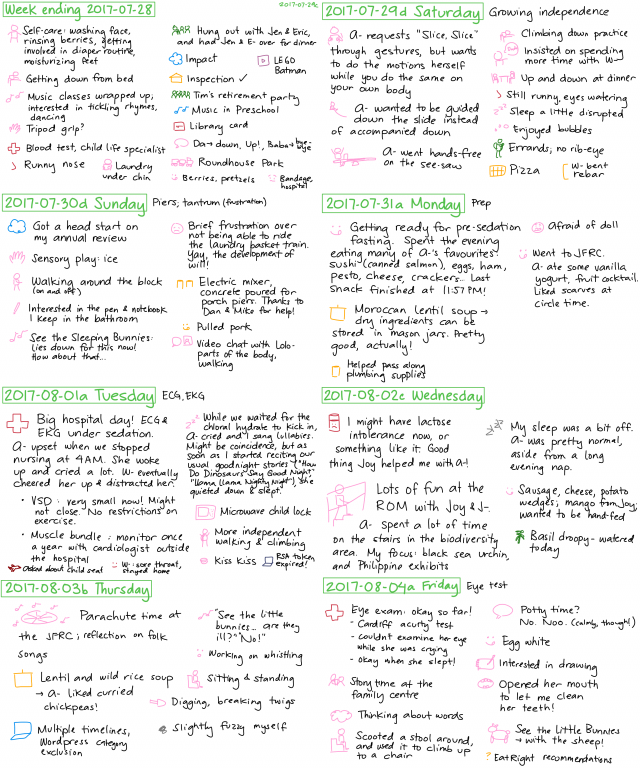 Week ending 2017-07-28
2017-07-29c
Self-care: washing face,
rinsing berries, getting
involved in diaper routine,
moisturizing feet
Getting down from bed
Music classes wrapped up;
interested in tickling rhymes,
dancing
Tripod grip?
Blood test, child life specialist
Runny nose
Laundry
under chin
Hung out with Jen & Eric,
and had Jen & E- over for dinner
Impact
LEGO
Batman
Inspection ✓
Tim's retirement party
Music in Preschool
Library card
Da→down, Up!, Baba→bye-
bye
Roundhouse Park
Berries, pretzels
Bandage,
hospital
2017-07-29d Saturday
Growing independence
A- requests "Slice, Slice"
through gestures, but wants
to do the motions herself
while you do the same on
your own body
A- wanted to be guided
down the slide instead
of accompanied down
A- went hands-free
on the see-saw
Climbing down practice
Insisted on spending
more time with W-
Up and down at dinner
Still runny, eyes watering
Sleep a little disrupted
Enjoyed bubbles
Errands; no rib-eye
Pizza
W- bent
rebar
2017-07-30d Sunday
Piers; tantrum (frustration)
Got a head start on
my annual review
Sensory play: ice
Walking around the block
(on and off)
Interested in the pen & notebook
I keep in the bathroom
See the Sleeping Bunnies:
lies down for this now!
How about that...
Brief frustration over
not being able to ride
the laundry basket train.
Yay, the development of
will!
Electric mixer,
concrete poured for
porch piers. Thanks to
Dan & Mike for help!
Pulled pork
Video chat with Lolo-
parts of the body,
walking
2017-07-31a Monday
Prep
Getting ready for pre-sedation
fasting. Spent the evening
eating many of A-'s favourites:
sushi (canned salmon), eggs, ham,
pesto, cheese, crackers. Last
snack finished at 11:57PM!
Moroccan lentil soup →
dry ingredients can be
stored in mason jars. Pretty
good, actually!
Helped pass along
plumbing supplies
Afraid of doll
Went to JFRC.
A- ate some vanilla
yogurt, fruit cocktail.
Liked scarves at
circle time.
2017-08-01a Tuesday
ECG, EKG
Big hospital day! ECG &
EKG under sedation.
A- upset when we stopped
nursing at 4AM. She woke
up and cried a lot. W- eventually
cheered her up & distracted her.
• VSD: very small now! Might
not close. No restrictions on
exercise.
• Muscle bundle: monitor once
a year with cardiologist outside
the hospital
Asked about child seat
W-: sore throat,
stayed home
While we waited for the
chloral hydrate to kick in,
A- cried and I sang lullabies.
Might be coincidence, but as
soon as I started reciting our
usual goodnight stories ("How
Do Dinosaurs Say Good Night",
"Llama Llama Nighty Night") she
quieted down & slept.
Microwave child lock
More independent
walking & climbing
Kiss Kiss
RSA token
expired!
2017-08-02c Wednesday
I might have lactose
intolerance now, or
something like it. Good
thing Joy helped me with A-!
Lots of fun at the
ROM with Joy & J-.
A- spent a lot of time
on the stairs in the biodiversity
area. My focus: black sea urchin,
and Philippine exhibits
My sleep was a bit off.
A- was pretty normal,
aside from a long
evening nap.
Sausage, cheese, potato
wedges; mango from Joy;
wanted to be hand-fed
Basil droopy- watered
today
2017-08-03b Thursday
Parachute time at
the JFRC; reflection on folk
songs
Lentil and wild rice soup
→ A- liked curried
chickpeas!
Multiple timelines,
Wordpress category
exclusion
"See the little
bunnies... are they
ill?" "No!"
Working on whistling
Sitting & standing
Digging, breaking twigs
Slightly fuzzy myself
2017-08-04a Friday
Eye test
Eye exam: okay so far!
- Cardiff acuity test
- couldn't examine her eye
while she was crying
- okay when she slept!
Story time at the
family centre
Thinking about words
Scooted a stool around,
and used it to climb up
to a chair
Potty time?
No. Noo. (calmly, though!)
Egg white
Interested in drawing
Opened her mouth
to let me clean
her teeth!
See the Little Bunnies
→ with the sheep!
? EatRight recommendations